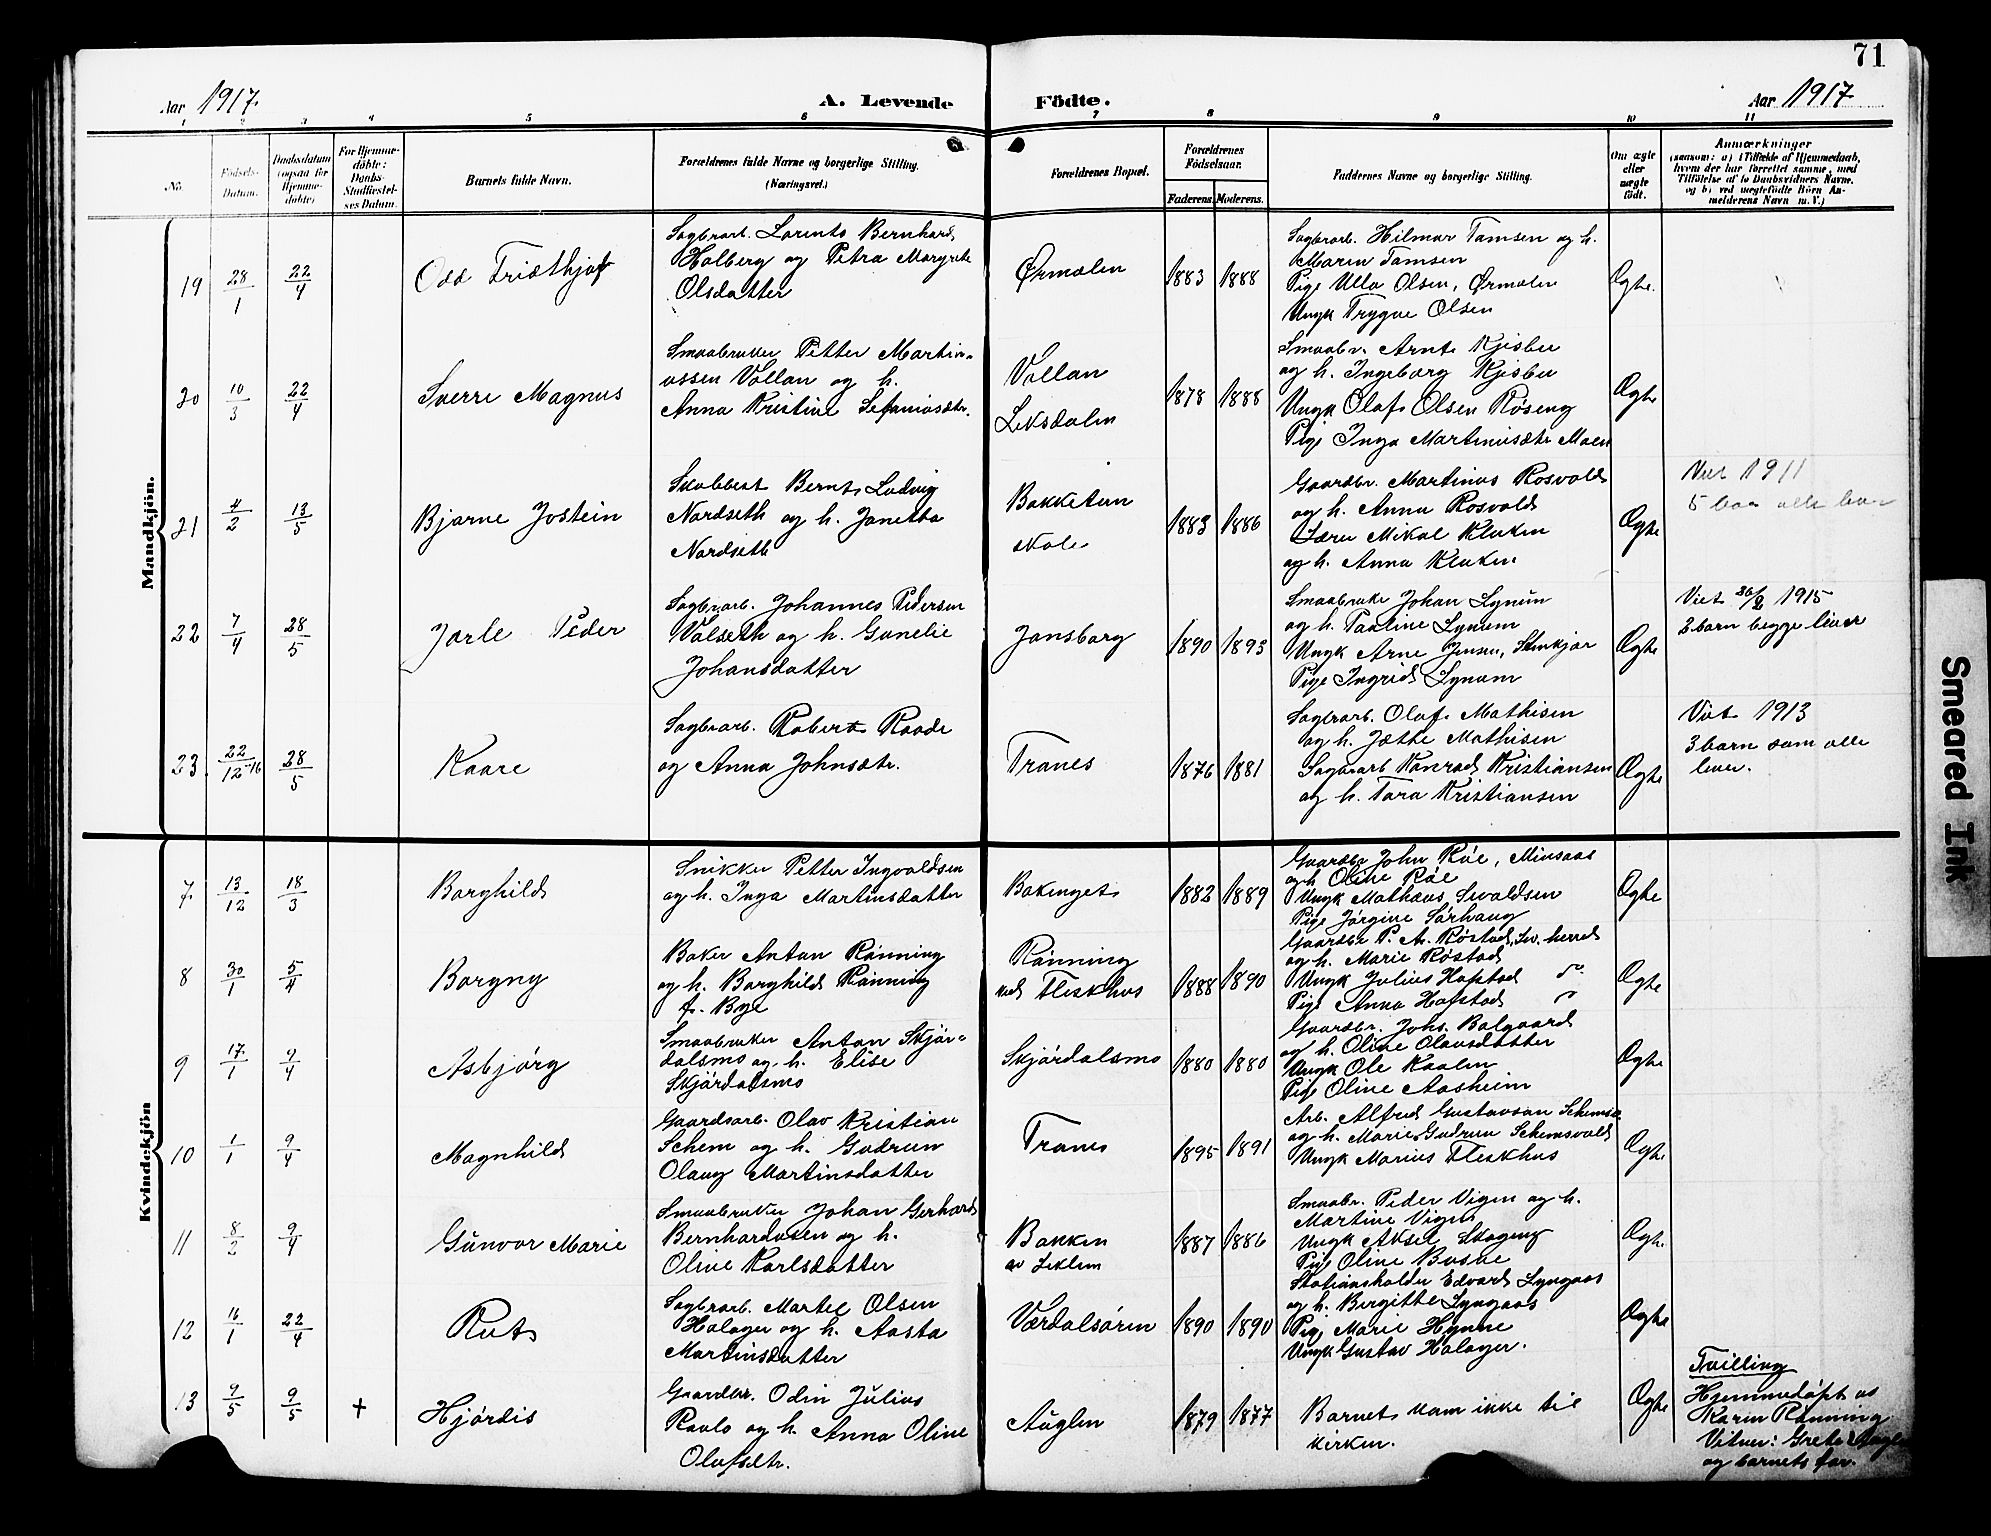 71
Aar 1917. A. Levende Födte. Aar 1917
1 2 3 4 5 6 7 8 9 10 11
No.
Födsels-Datum.
Daabsdatum (ogsaa for Hjemme-döbte)
For Hjemme-döbte: Daabs-Stadfæstel-ses Datum.
Barnets fulde Navn.
Forældrenes fulde Navne og borgerlige Stilling.
(Næringsvei.)
Forældrenes Bopæl.
Forældrenes Födselsaar.
Faderens. Moderens.
Faddernes Navne og borgerlige Stilling.
Om ægte eller uægte födt.
Anmærkninger
(saasom: a) i Tilfælde af Hjemmedaab,
hvem der har forrettet samme, med
Tilföielse af to Daabsvidners Navne.
og b) ved uegtefödte Börn An-
melderens Navn m. V.)
Mandkjön.
19 28/1 22/4 Odd Friethjof
Sagbrarb. Lorents Bernhard
Holberg og Petra Margrete
Olsdatter
Ørmelen 1883 1888
Sagbrarb. Hilmar Tamsen og h.
Maren Tamsen
Pige Ulla Olsen, Ørmelen
Ungk Trygve Olsen
Ægte.
20 10/3 22/4 Sverre Magnus
Smaabruker Petter Martin-
ussen Vollan og h.
Anna Kristine
Vollan
Leksdalen
1878 1888
Smaabr. Arnt Kjesbu
og h. Ingeborg Kjesbu
Ungk Olaf Olsen Røseng
Pige Inga Martinusdtr Moen
Ægte
21 4/2 13/5 Bjarne Jostein
Skolebest Bernt Ludvig
Nordseth og h. Janetta
Nordseth
Bakketun
skole
1883 1886
Gaardbr. Martinus Rosvold
og h. Anna Rosvold
Lærer Mikal Kluken
og h. Anna Kluken
Ægte
Viet 1911
5 barn alle lever
22 7/4 28/5 Jarle Peder
Sagbrarb. Johannes Pedersen
Valseth og h. Gunelie
Johansdatter
Jansborg 1890 1893
Smaabruke Johan Lynum
og h. Pauline Lynum
Ungk Arne Jensen, Stenkjær
Pige Ingrid Lynum
Ægte
Viet 1915
2 barn begge lever
23 22/12-16 28/5 Kaare
Sagbrarb. Robert Raade
og Anna Johnsdtr.
Tranes 1876 1881
Sagbrarb. Olaf Mathisen
og h. Jette Mathisen
Sagbrarb Konrad Kristiansen
og h. Tora Kristiansen
Ægte
Viet 1913
3 barn som alle
lever.
Kvindekjön
7 13/12 18/3 Borghild
Snikker Petter Ingvaldsen
og h. Inga Martinsdatter
Bakenget 1882 1889
Gaardbr John Røe, Minsaas
og h Oline Røe
Ungk Mathæus Sivaldsen
Pige Jørgine Sørhaug
Ægte
8 30/1 5/4 Borgny
Baker Anton Rønning
og h. Borghild Rønning
f. Bye
Rønning
ved Fleskhus
1888 1890
Gaardbr P. A. Røstad, Sv. herred
og h. Marie Røstad
Ungk Julius Hofstad
Pige Anna Hofstad
Ægte
9 17/1 9/4 Asbjørg
Smaabruker Anton Skjør-
dalsmo og h. Elise
Skjørdalsmo
Skjørdalsmo 1880 1880
Gaardbr. Johs. Balgaard
og h. Oline Olausdatter
Ungk Ole Kaalen
Pige Oline Aasheim
Ægte
10 1/1 9/4 Magnhild
Gaardsarb. Olav Kristian
Schem og h. Gudrun
Olaug Martinsdatter
Tranes 1895 1891
Arb. Alfred Gustavsan
og h. Marie Gudrun Schemsvold
Ungk Marius Fleskhus
Ægte
11 8/2 9/4 Gunvor Marie
Smaabruker Johan Gerhard
Bernhardusen og h.
Oline Karlsdatter
Bakken
av Leklem
1887 1886
Smaabr. Peder Vigen og h.
Martine Vigen
Ungk Aksel
Pige Oline Buske
Ægte
12 16/1 22/4 Rut
Sagbrarb. Martel Olsen
Holager og h. Aasta
Martinsdatter
Værdalsøren 1890 1890
Stationsholder Edvard Lyngaas
og h. Birgitte Lyngaas
Pige Marie Hynne
Ungk Gustav Holager.
Ægte
13 9/5 9/5 + Hjørdis
Gaardbr. Odin Julius
og h. Anna Oline
Olafsdtr.
Auglen 1879 1877
Barnet kom ikke til
kirken.
Ægte
Tvilling
Hjemmedøpt av
Karen Rønning
Vitner: Grete
og barnets far.
Smeared Ink